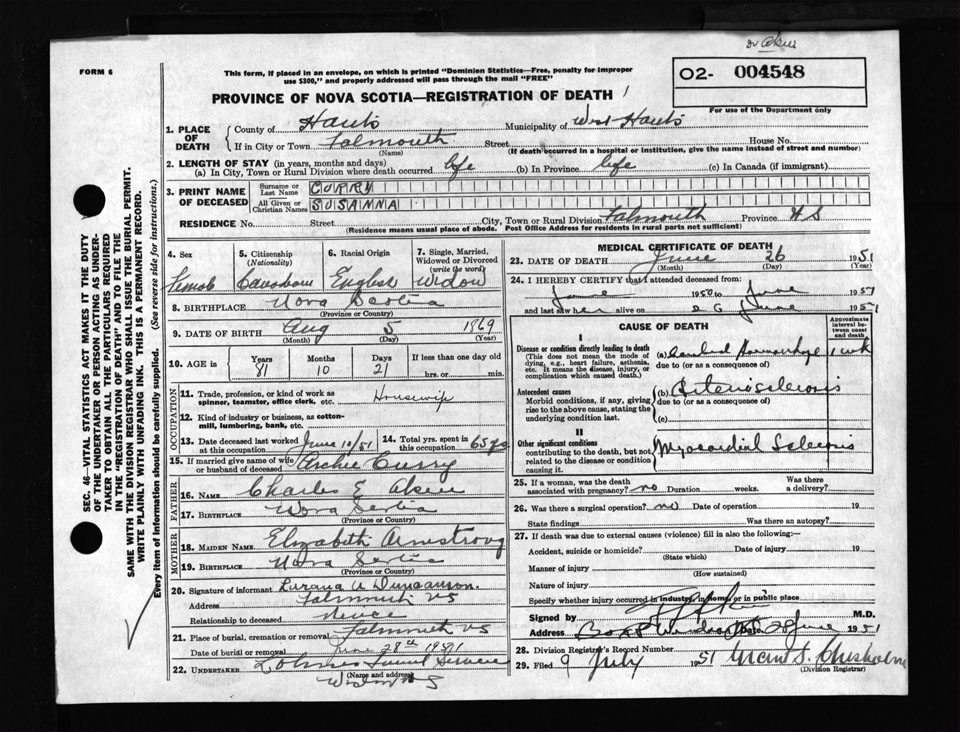 Dr Akin
FORM 6
This form, if placed in an envelope, on which is printed "Dominion Statistics—Free, penalty for improper
use $300," and properly addressed will pass through the mail "FREE"
O2- 004548
For use of the Department only
PROVINCE OF NOVA SCOTIA—REGISTRATION OF DEATH
1. PLACE OF DEATH
County of Hants Municipality of West Hants
If in City or Town Falmouth Street House No.
(Name) (If death occurred in a hospital or institution, give the name instead of street and number)
2. LENGTH OF STAY (in years, months and days)
(a) In City, Town or Rural Division where death occurred life (b) In Province life (c) In Canada (if immigrant)
3. PRINT NAME OF DECEASED
Surname or Last Name CURRY
All Given or Christian Names SUSANNA
RESIDENCE No. Street City, Town or Rural Division Falmouth Province N S
(Residence means usual place of abode. Post Office Address for residents in rural parts not sufficient)
SEC. 46—VITAL STATISTICS ACT MAKES IT THE DUTY
OF THE UNDERTAKER OR PERSON ACTING AS UNDER-
TAKER TO OBTAIN ALL THE PARTICULARS REQUIRED
IN THE "REGISTRATION OF DEATH" AND TO FILE THE
SAME WITH THE DIVISION REGISTRAR WHO SHALL ISSUE THE BURIAL PERMIT.
WRITE PLAINLY WITH UNFADING INK. THIS IS A PERMANENT RECORD.
Every item of information should be carefully supplied. (See reverse side for instructions.)
4. Sex 5. Citizenship (Nationality) 6. Racial Origin 7. Single, Married, Widowed or Divorced (write the word)
Female Canadian English Widow
8. BIRTHPLACE Nova Scotia
(Province or Country)
9. DATE OF BIRTH Aug 5 1869
(Month) (Day) (Year)
10. AGE in Years 81 Months 10 Days 21 If less than one day old hrs. or min.
OCCUPATION
11. Trade, profession, or kind of work as spinner, teamster, office clerk, etc. Housewife
12. Kind of industry or business, as cotton-mill, lumbering, bank, etc.
13. Date deceased last worked at this occupation June 10/51 14. Total yrs. spent in this occupation 65 yrs
15. If married give name of wife or husband of deceased Archie Curry
FATHER
16. NAME Charles E Akin
17. BIRTHPLACE Nova Scotia
(Province or Country)
MOTHER
18. MAIDEN NAME Elizabeth Armstrong
19. BIRTHPLACE Nova Scotia
(Province or Country)
20. Signature of informant Lurana A Duncanson.
Address Falmouth NS
Relationship to deceased Neice
21. Place of burial, cremation or removal Falmouth NS
Date of burial or removal June 28th
22. UNDERTAKER Funeral Service
(Name and address)
MEDICAL CERTIFICATE OF DEATH
23. DATE OF DEATH June 26 1951
(Month) (Day) (Year)
24. I HEREBY CERTIFY that I attended deceased from:
June 1950 to June 1951
and last saw her alive on 26 June 1951
CAUSE OF DEATH
Approximate interval between cause and death
I
Disease or condition directly leading to death (This does not mean the mode of dying, e.g., heart failure, asthenia, etc. It means the disease, injury, or complication which caused death.)
(a) Cerebral Haemorrhage 1 wk
due to (or as a consequence of)
Antecedent causes
Morbid conditions, if any, giving rise to the above cause, stating the underlying condition last.
(b) Arteriosclerosis
due to (or as a consequence of)
(c)
II
Other significant conditions contributing to the death, but not related to the disease or condition causing it.
Myocardial Sclerosis
25. If a woman, was the death associated with pregnancy? no Duration weeks. Was there a delivery?
26. Was there a surgical operation? no Date of operation 19
State findings Was there an autopsy?
27. If death was due to external causes (violence) fill in also the following:—
Accident, suicide or homicide? Date of injury 19
(State which)
Manner of injury
(How sustained)
Nature of injury
Specify whether injury occurred in industry, in home, or in public place
Signed by M.D.
Address Box 28 June 1951
28. Division Registrar's Record Number
29. Filed 9 July 1951 Grant S. Chisholm
(Division Registrar)